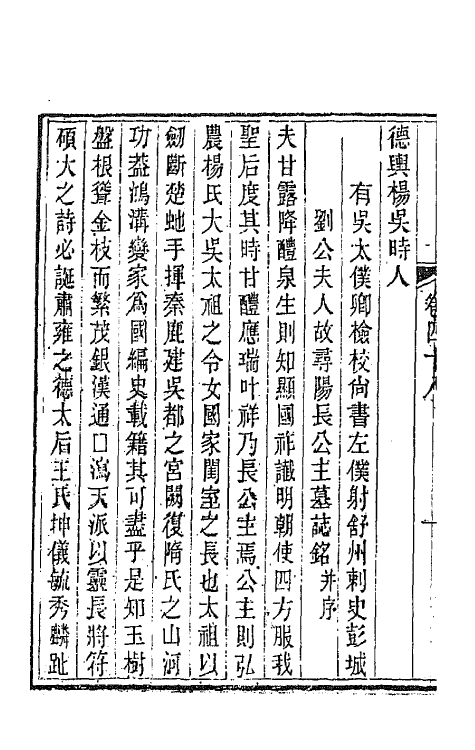 卷四十八
德輿楊吳時人
有吳太僕卿檢校尚書左僕射舒州刺史彭城
劉公夫人故尋陽長公主墓誌銘并序
夫甘露降醴泉生則知顯國祚識明朝使四方服我
聖后度其時甘醴應瑞叶祥乃長公主焉公主則弘
農楊氏大吳太祖之令女國家閨室之長也太祖以
劒斷楚虵手揮秦鹿建吳都之宮闕復隋氏之山河
功葢鴻溝變家爲國編史載籍其可盡乎是知玉樹
盤根聳金枝而繁茂銀漢通口瀉天派以靈長將符
碩大之詩必誕肅雍之德太后王氏抻儀毓秀麟趾